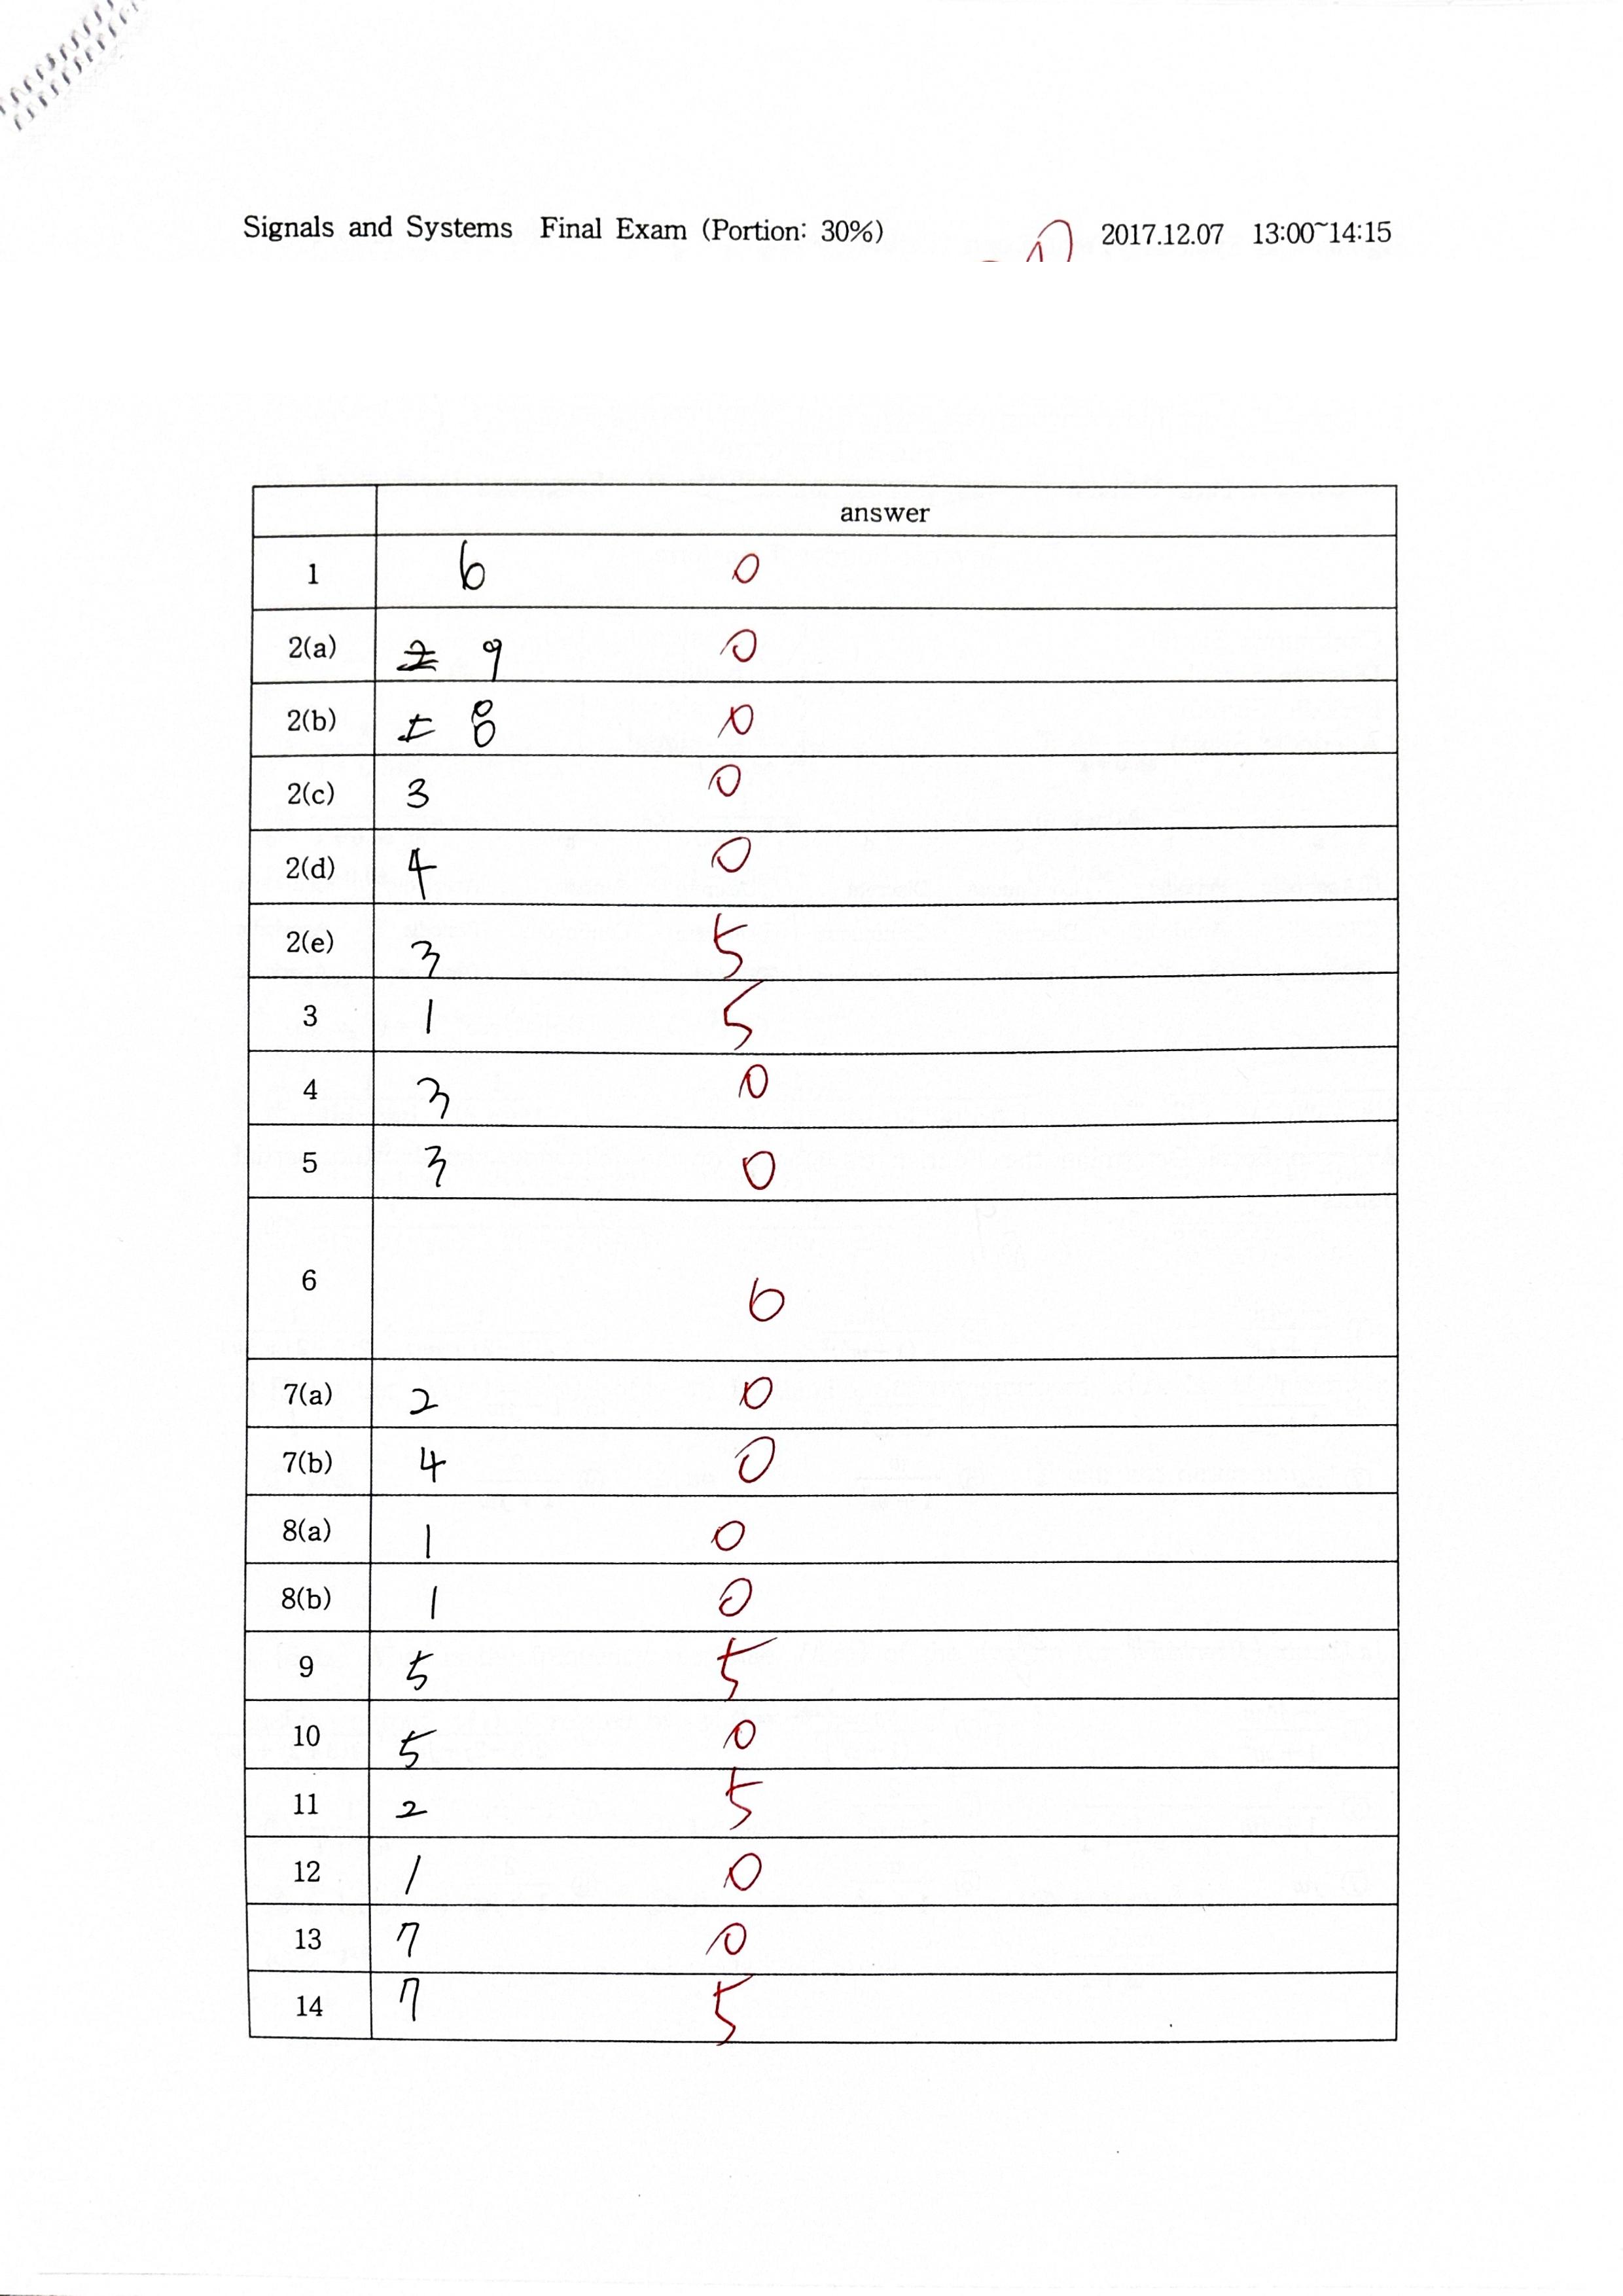 Signals and Systems Final Exam (Portion: 30%) 2017.12.07 13:00~14:15
answer
1 6 0
2(a) 2 9 0
2(b) 8 0
2(c) 3 0
2(d) 4 0
2(e) 3 5
3 1 5
4 3 0
5 3 0
6 6
7(a) 2 0
7(b) 4 0
8(a) 1 0
8(b) 1 0
9 5 5
10 5 0
11 2 5
12 1 0
13 7 0
14 7 5